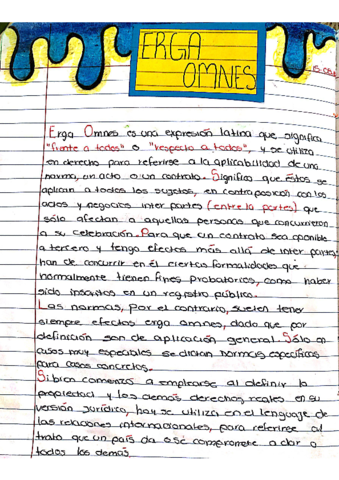 ERGA
OMNES
Erga Omnes es una expresión latina que significa
"frente a todos" o "respecto a todos", y se utiliza
en derecho para referirse a la aplicabilidad de una
norma, un acto o un contrato. Significa que éstos se
aplican a todos los sujetos, en contraposición con los
actos y negocios inter partes (entre partes) que
sólo afectan a aquellas personas que concurrieron
a su celebración. Para que un contrato sea oponible
a tercero y tenga efectos más allá de inter partes,
han de concurrir en él ciertas formalidades que
normalmente tienen fines probatorios, como haber
sido inscritos en un registro público.
Las normas, por el contrario, suelen tener
siempre efectos erga omnes, dado que por
definición son de aplicación general. Sólo en
casos muy especiales se dictan normas específicas
para casos concretos.
Si bien comenzó a emplearse al definir la
propiedad y los demás derechos reales en su
versión jurídica, hoy se utiliza en el lenguaje de
las relaciones internacionales, para referirse al
trato que un país da o se compromete a dar a
todos los demás.